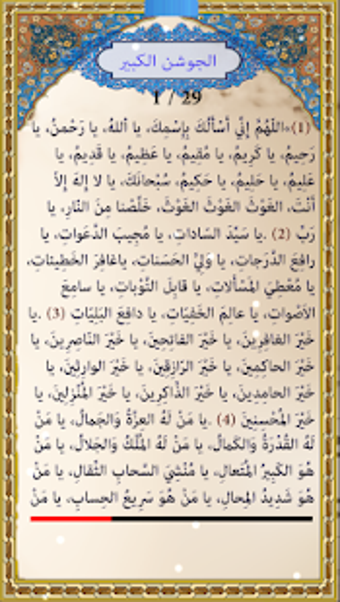 الجوشن الكبير
1 / 29
(1)«اللّهُمَّ إِنّي أَسْأَلُكَ بِإِسْمِكَ، يا اَللهُ، يا رَحْمنُ، يا
رَحِيمُ، يا كَرِيمُ، يا مُقِيمُ، يا عَظِيمُ، يا قَدِيمُ، يا
عَلِيمُ، يا حَلِيمُ، يا حَكِيمُ، سُبْحانَكَ، يا لا إِلهَ إِلاَّ
أَنْتَ، الغَوْثَ الغَوْثَ الغَوْثَ، خَلِّصْنا مِنَ النّارِ، يا
رَبِّ (2) .يا سَيِّدَ السّاداتِ، يا مُجِيبَ الدَّعَواتِ، يا
رافِعَ الدَّرَجاتِ، يا وَلِيَّ الحَسَناتِ، ياغافِرَ الخَطِيئاتِ،
يا مُعْطِيَ المَسْأَلاتِ، يا قابِلَ التَّوْباتِ، يا سامِعَ
الأَصْواتِ، يا عالِمَ الخَفِيّاتِ، يا دافِعَ البَلِيّاتِ (3) .يا
خَيْرَ الغافِرِينَ، يا خَيْرَ الفاتِحِينَ، يا خَيْرَ النّاصِرِينَ، يا
خَيْرَ الحاكِمِينَ، يا خَيْرَ الرّازِقِينَ، يا خَيْرَ الوارِثِينَ، يا
خَيْرَ الحامِدِينَ، يا خَيْرَ الذّاكِرِينَ، يا خَيْرَ المُنْزِلِينَ، يا
خَيْرَ المُحْسِنِينَ (4) .يا مَنْ لَهُ العِزَّةُ وَالجَمالُ، يا مَنْ
لَهُ القُدْرَةُ وَالكَمالُ، يا مَنْ لَهُ المُلْكُ وَالجَلالُ، يا مَنْ
هُوَ الكَبِيرُ المُتَعالِ، يا مُنْشِيَ السَّحابِ الثِّقالِ، يا مَنْ
هُوَ شَدِيدُ المِحالِ، يا مَنْ هُوَ سَرِيعُ الحِسابِ، يا مَنْ